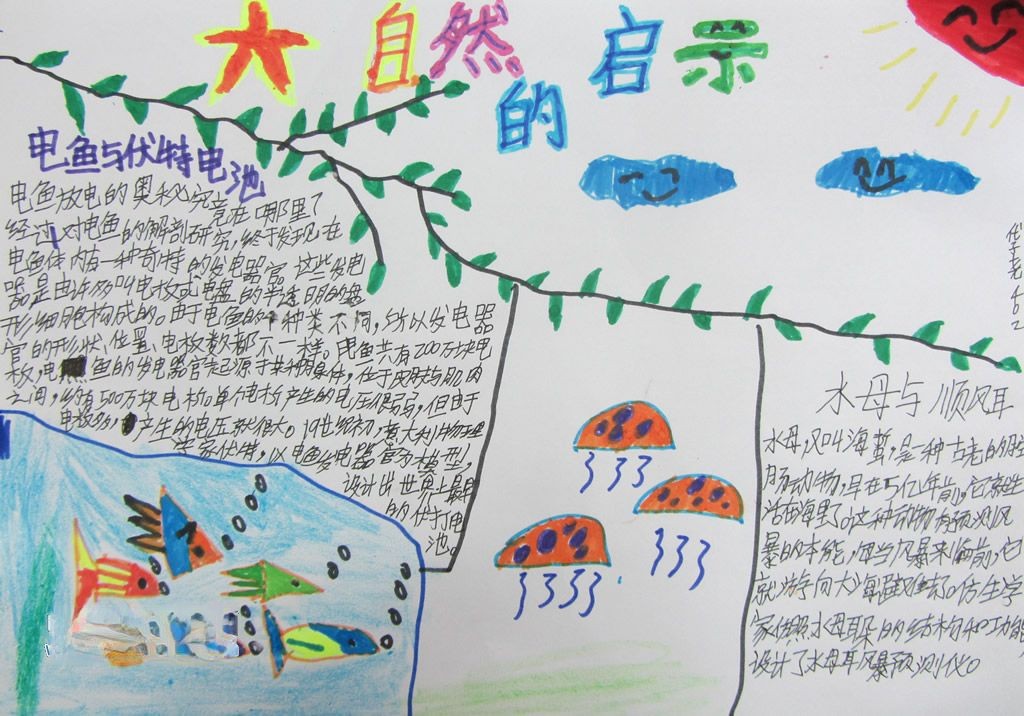 大自然
的启示
电鱼与伏特电池
电鱼放电的奥秘究竟在哪里？
经过对电鱼的解剖研究，终于发现在
电鱼体内有一种奇特的发电器官。这些发电
器是由许多叫电板或电盘的半透明的盘
形细胞构成的。由于电鱼的种类不同，所以发电器
官的形状、位置、电板数都不一样。电鱼共有200万块电
板，电鱼的发电器官起源于某种身体，位于皮肤与肌肉
之间，约有500万块电板。单个电板产生的电压很弱，但由于
电板多，产生的电压就很大。19世纪初，意大利物理
学家伏特，以电鱼发电器官为模型，
设计出世界上最早
的伏打电
池。
水母与顺风耳
水母，又叫海蜇，是一种古老的腔
肠动物，早在5亿年前，它就生
活在海里了。这种动物有预测风
暴的本能，每当风暴来临前，它
就游向大海避难去了。仿生学
家仿照水母耳朵的结构和功能
设计了水母耳风暴预测仪。